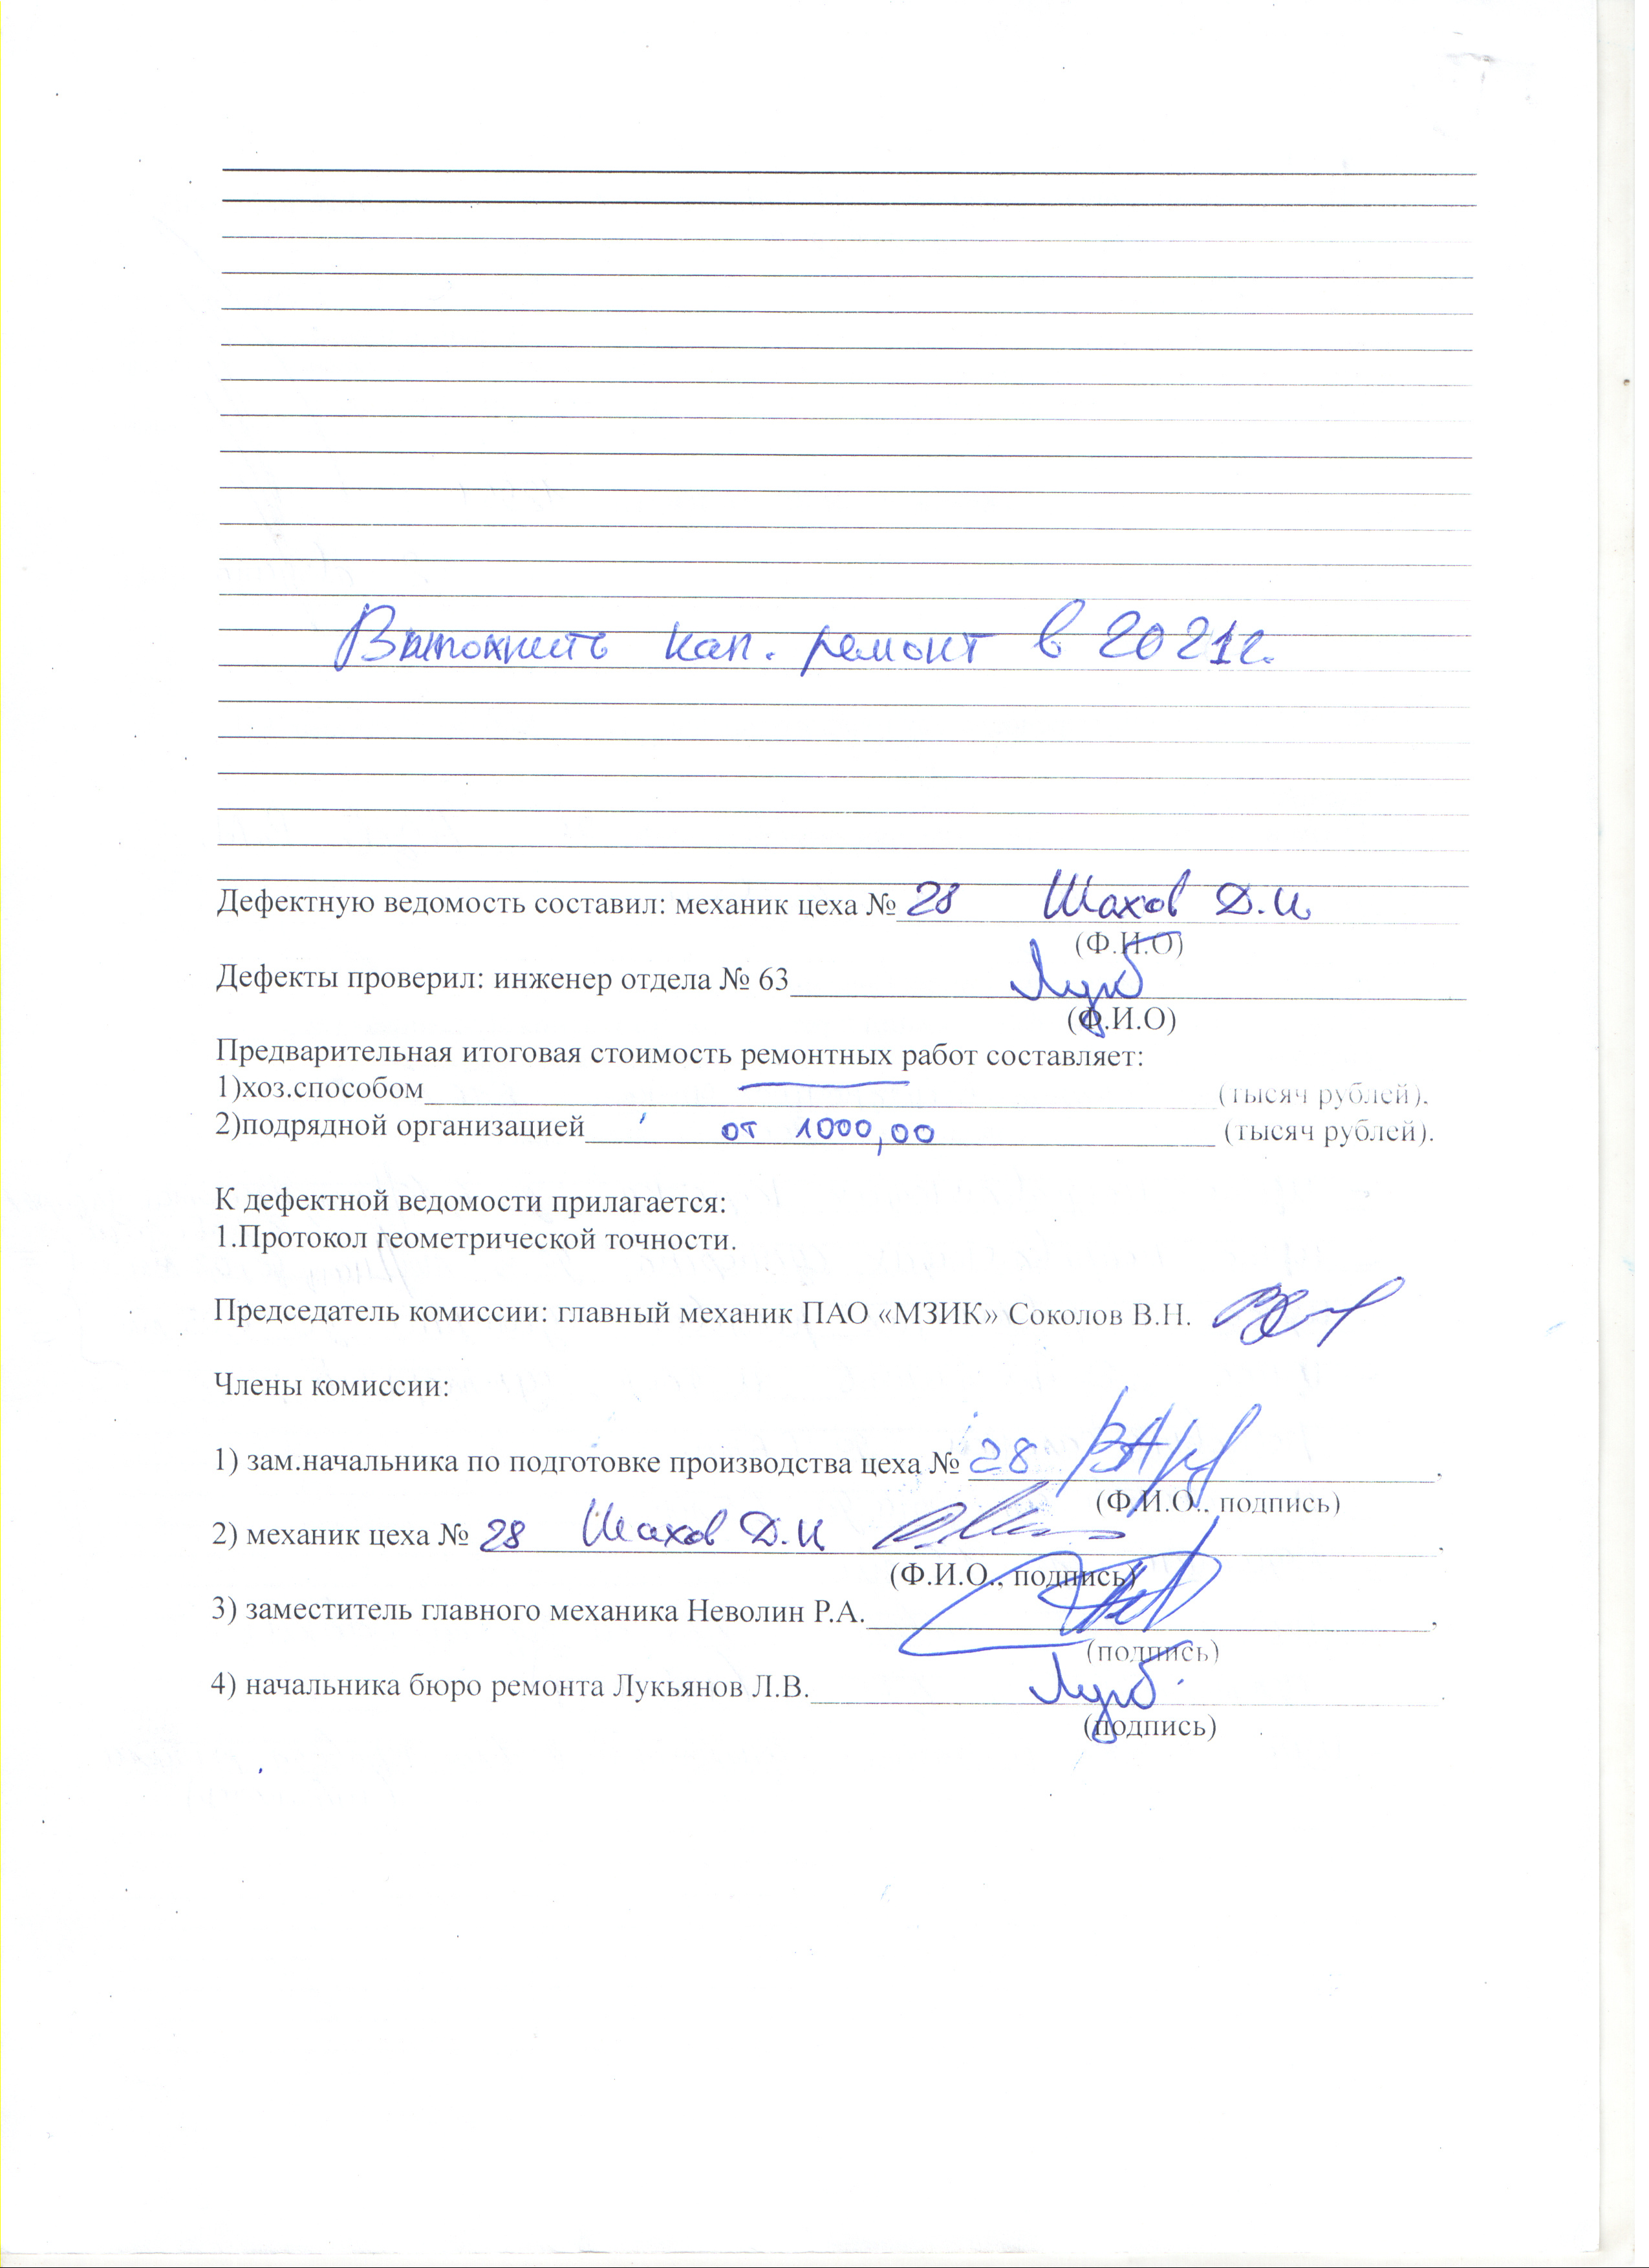 Выполнить кап. ремонт в 2021г.
Дефектную ведомость составил: механик цеха № 28 Шахов Д.И
(Ф.И.О)
Дефекты проверил: инженер отдела № 63
(Ф.И.О)
Предварительная итоговая стоимость ремонтных работ составляет:
1)хоз.способом (тысяч рублей).
2)подрядной организацией от 1000,00 (тысяч рублей).
К дефектной ведомости прилагается:
1.Протокол геометрической точности.
Председатель комиссии: главный механик ПАО «МЗИК» Соколов В.Н.
Члены комиссии:
1) зам.начальника по подготовке производства цеха № 28
(Ф.И.О., подпись)
2) механик цеха № 28 Шахов Д.И
(Ф.И.О., подпись)
3) заместитель главного механика Неволин Р.А.
(подпись)
4) начальника бюро ремонта Лукьянов Л.В.
(подпись)